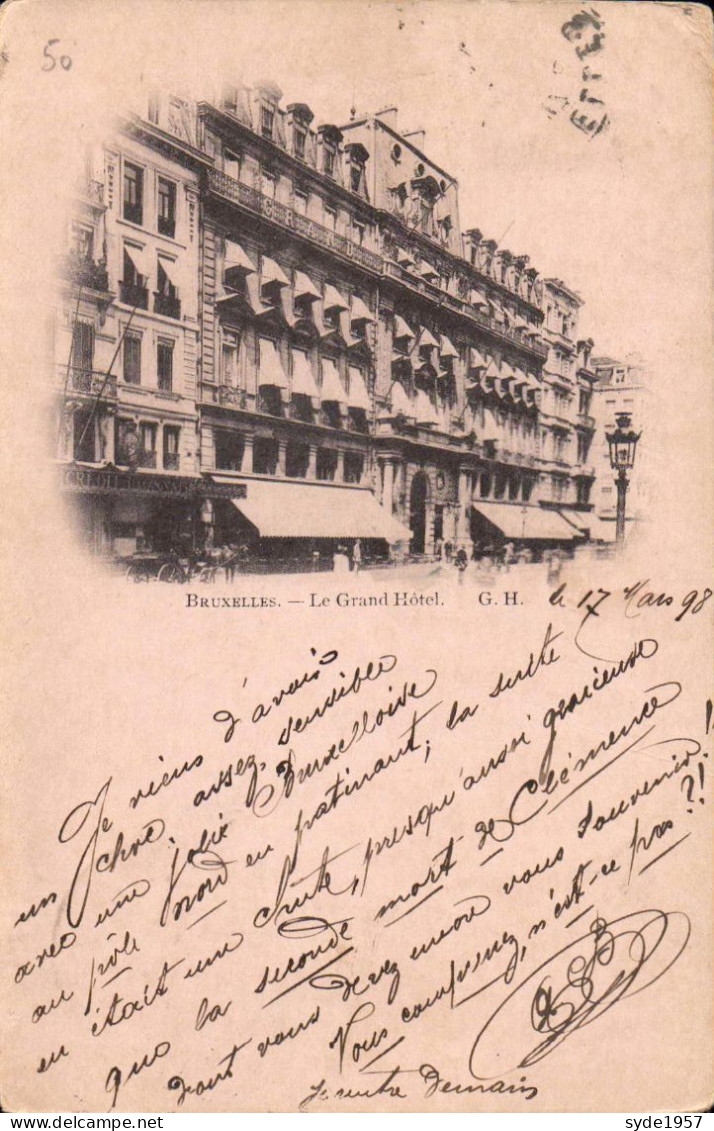 50
CREDIT LYONNAIS
BRUXELLES. — LE GRAND HÔTEL. G. H.
le 17 Mars 98
Je viens d'avoir
un choc, assez sensible
avec une jolie Bruxelloise
au pôle nord en patinant, la suite
en était une chute, presqu'aussi gracieuse
que la seconde mort de Clémence
dont vous devez encore vous souvenir!
Vous comprenez, n'est-ce pas?!
Demain
syde1957
www.delcampe.net